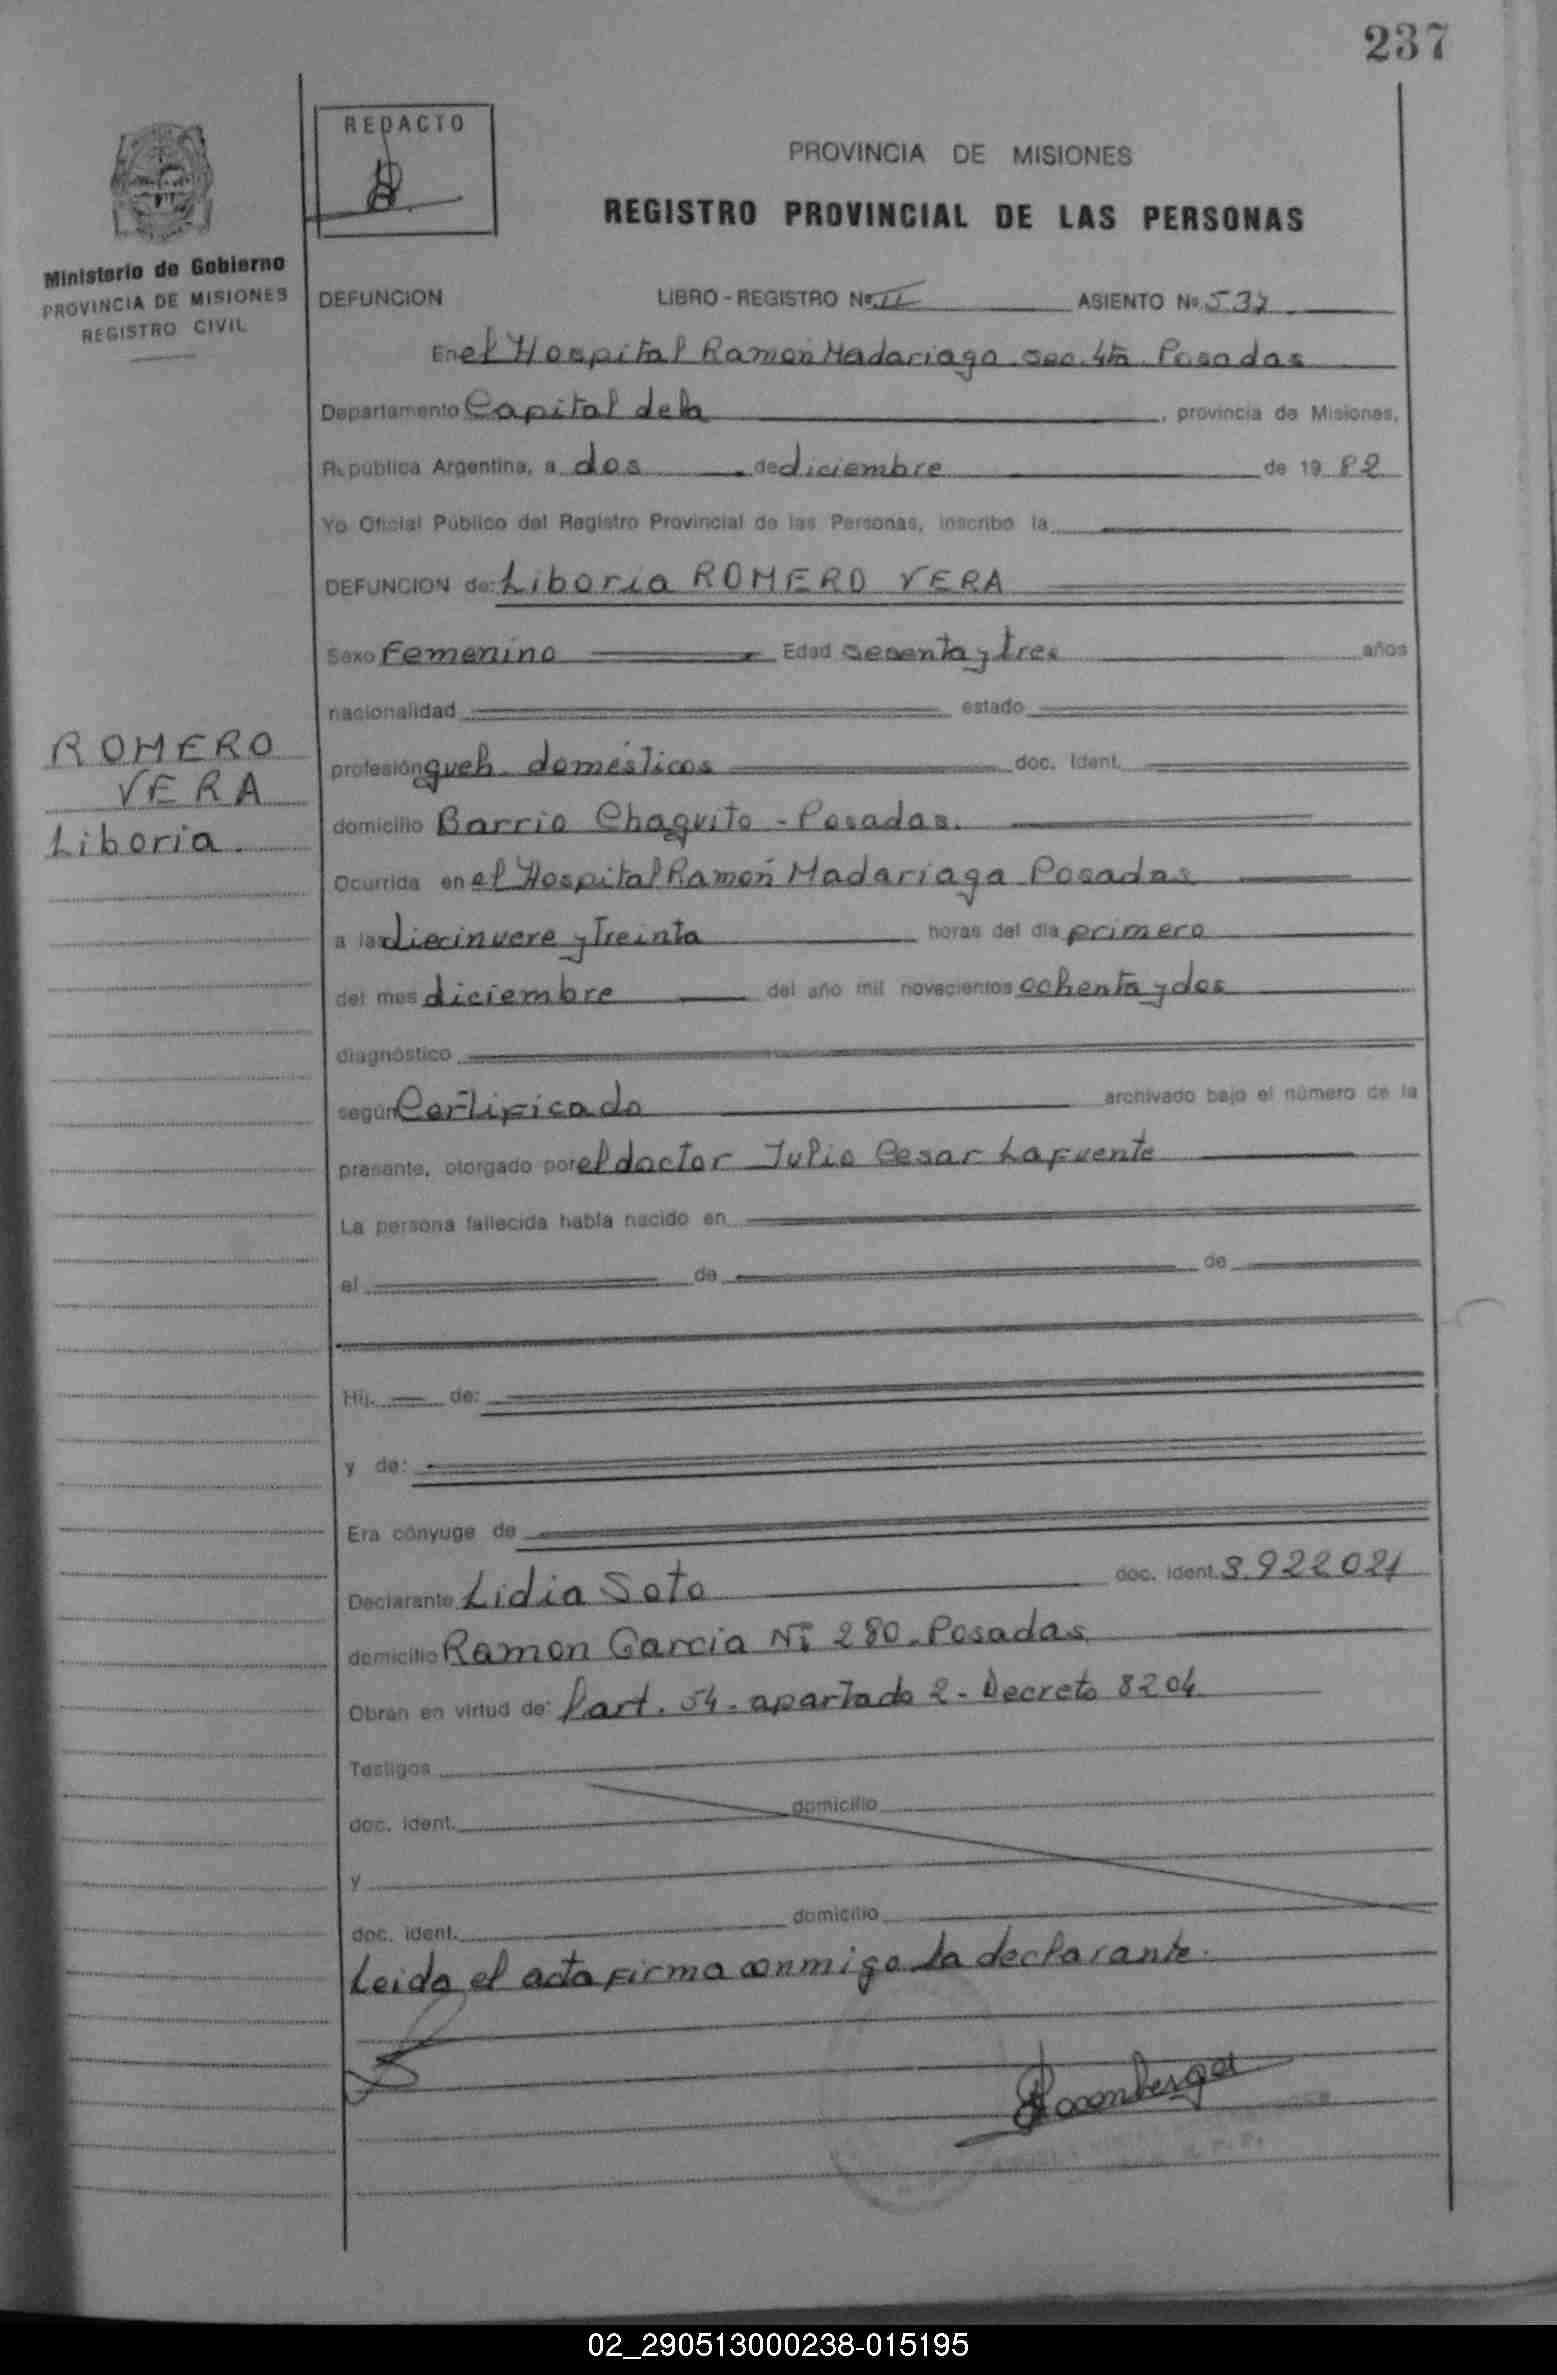 237
REDACTO
PROVINCIA DE MISIONES
REGISTRO PROVINCIAL DE LAS PERSONAS
Ministerio de Gobierno
PROVINCIA DE MISIONES
REGISTRO CIVIL
DEFUNCION LIBRO - REGISTRO Nº II ASIENTO Nº 537
En el Hospital Ramón Madariaga Sec. 4ta Posadas
Departamento Capital de la, provincia de Misiones,
República Argentina, a dos de diciembre de 19 82
Yo Oficial Público del Registro Provincial de las Personas, inscribo la
DEFUNCION de: Liboria ROMERO VERA
Sexo Femenino Edad sesenta y tres años
nacionalidad estado
ROMERO
VERA
Liboria.
profesión queh. domésticos doc. Ident.
domicilio Barrio Chaquito - Posadas.
Ocurrida en el Hospital Ramón Madariaga Posadas
a las diecinueve y treinta horas del día primero
del mes diciembre del año mil novecientos ochenta y dos
diagnóstico
según Certificado archivado bajo el número de la
presente, otorgado por el doctor Julio Cesar Lafuente
La persona fallecida había nacido en
el de de
Hij. de:
y de:
Era cónyuge de
Declarante Lidia Soto doc. ident. 3.922.021
domicilio Ramon Garcia Nº 280. Posadas
Obran en virtud de: l'art. 54 - apartado 2 - Decreto 8204
Testigos
doc. ident. domicilio
y
doc. ident. domicilio
Leida el acta firma conmigo la declarante.
02_290513000238-015195